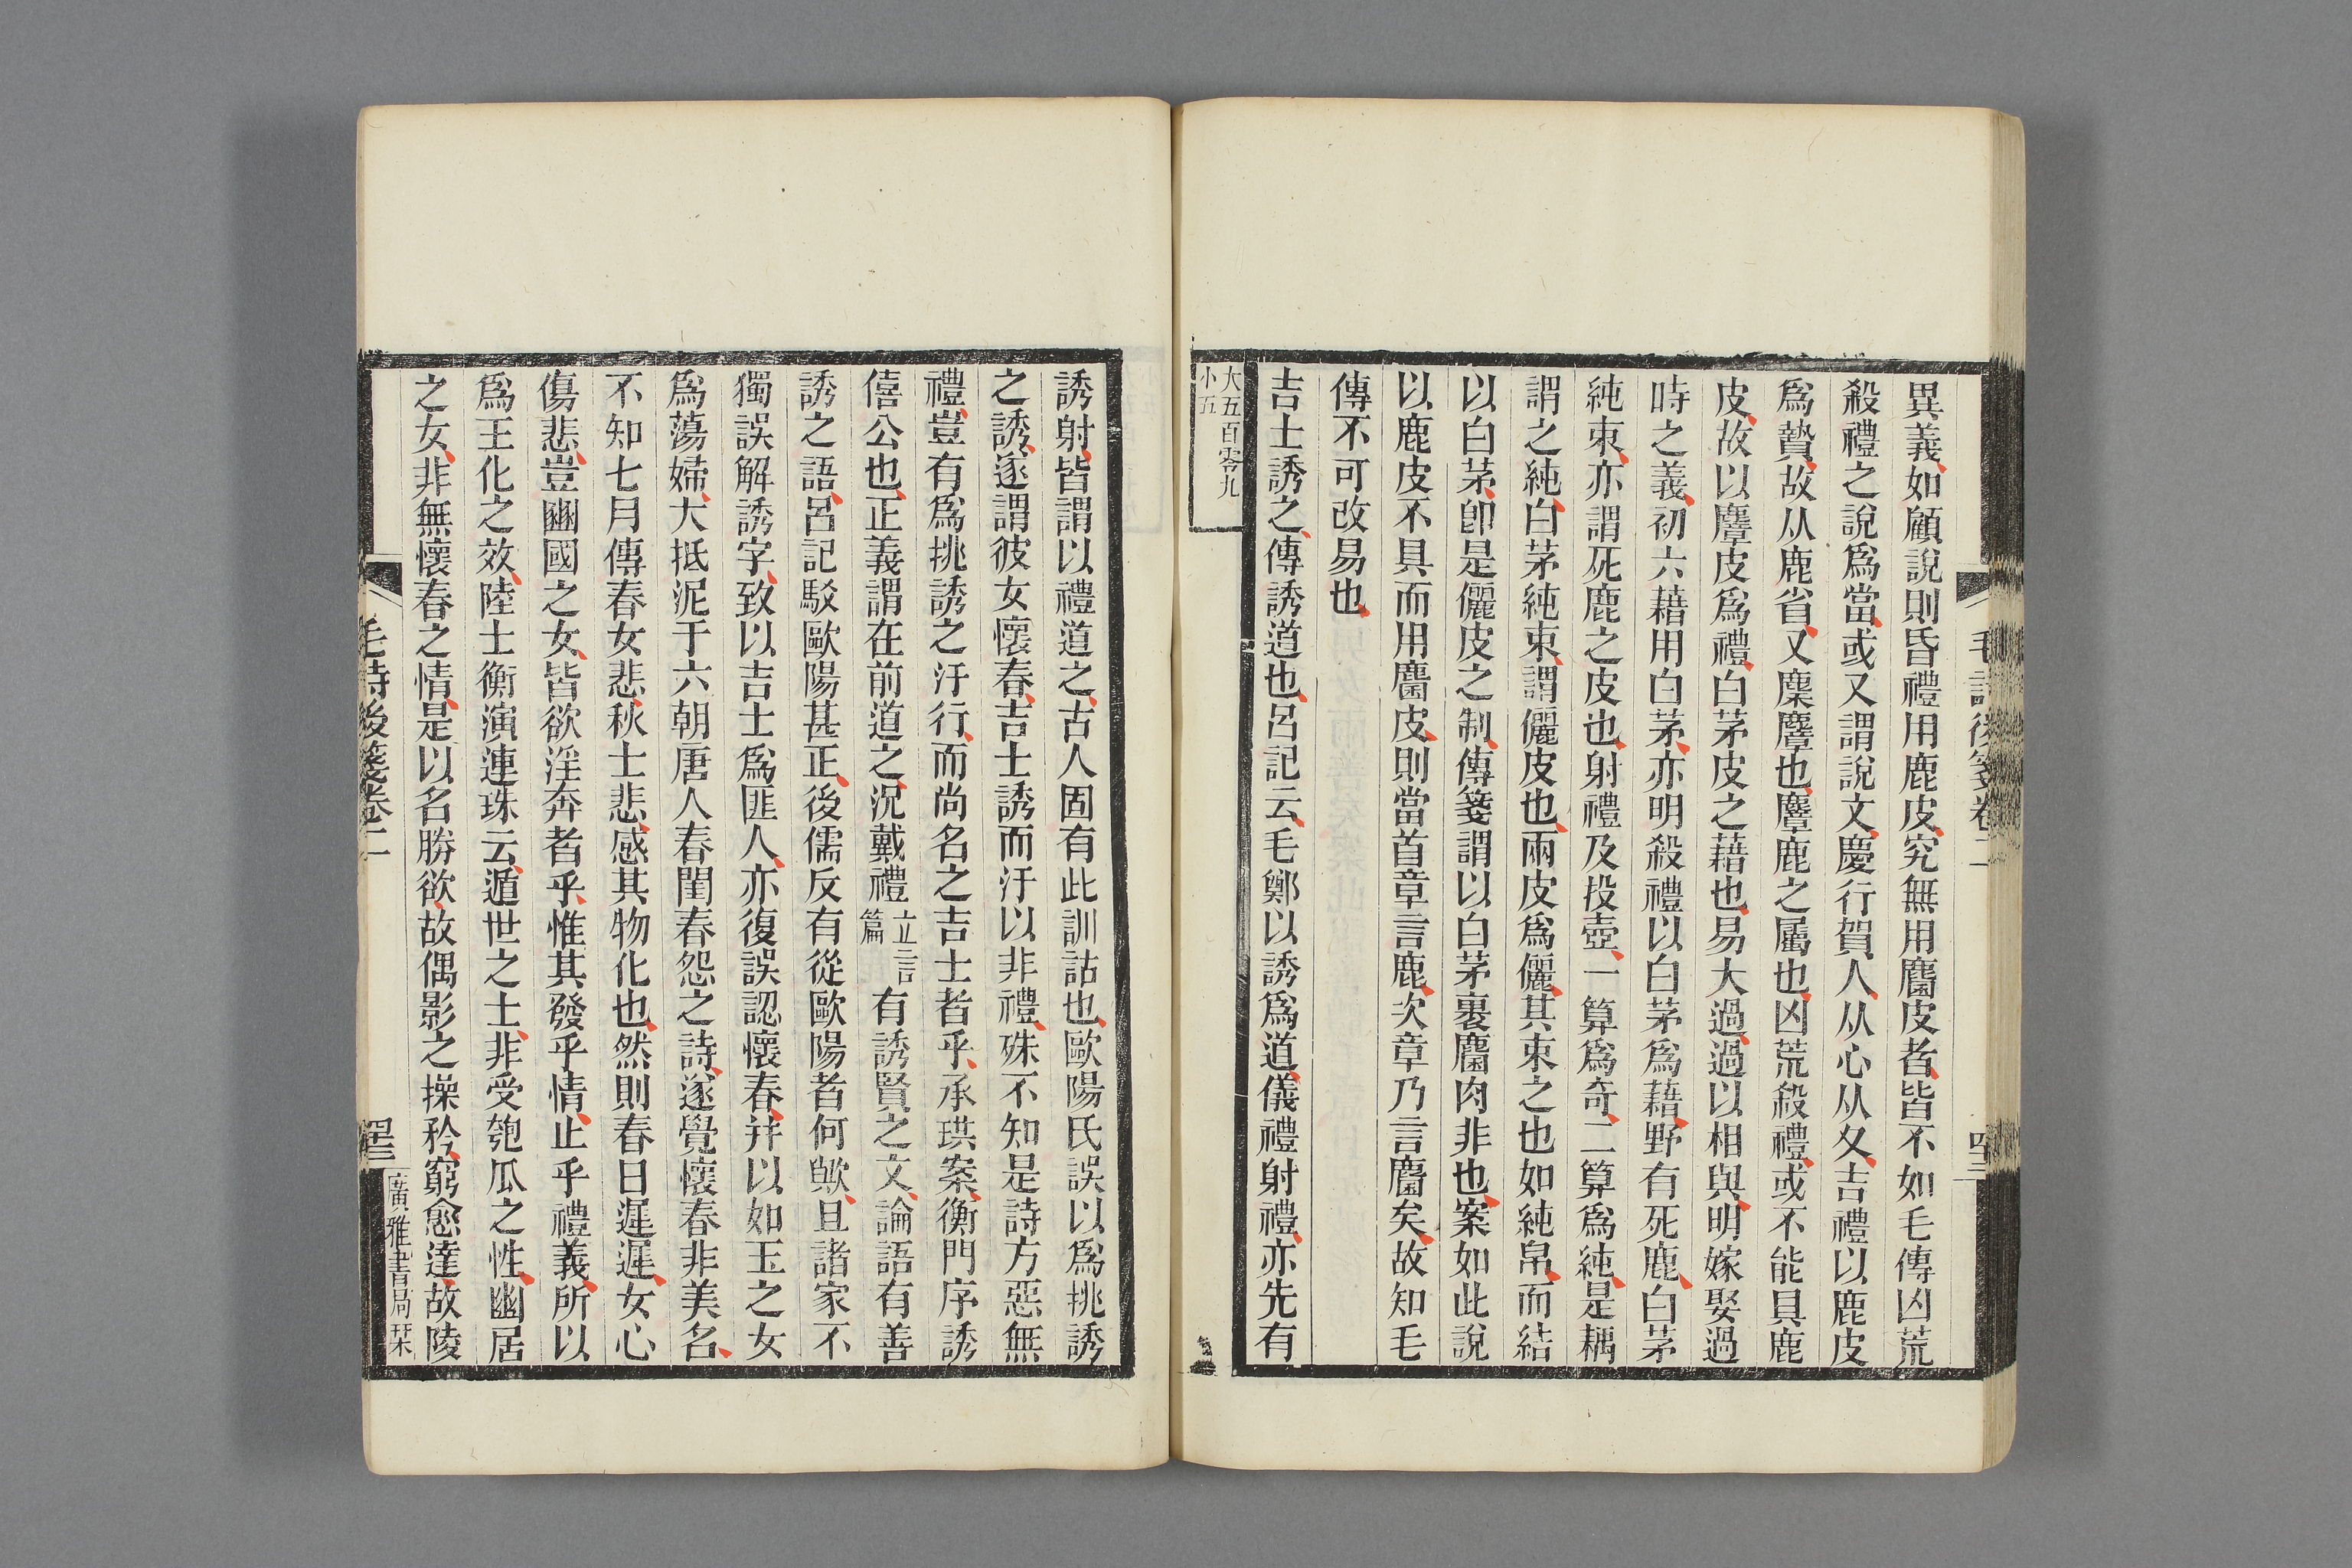 異義如顧說則昏禮用鹿皮究無用麕皮者皆不如毛傳凶荒
殺禮之說爲當或又謂說文慶行賀人从心从夊吉禮以鹿皮
爲贄故从鹿省又麇麞也麞鹿之屬也凶荒殺禮或不能具鹿
皮故以麞皮爲禮白茅皮之藉也易大過過以相與明嫁娶過
時之義初六藉用白茅亦明殺禮以白茅爲藉野有死鹿白茅
純束亦謂死鹿之皮也射禮及投壺一算爲奇二算爲純是耦
謂之純白茅純束謂儷皮也兩皮爲儷其束之也如純帛而結
以白茅卽是儷皮之制傳箋謂以白茅裹麕肉非也案如此說
以鹿皮不具而用麕皮則當首章言鹿次章乃言麕矣故知毛
傳不可改易也
吉士誘之傳誘道也呂記云毛鄭以誘爲道儀禮射禮亦先有
大五百零九
小五
毛詩後箋卷二
四二
誘射皆謂以禮道之古人固有此訓詁也歐陽氏誤以爲挑誘
之誘遂謂彼女懷春吉士誘而汙以非禮殊不知是詩方惡無
禮豈有爲挑誘之汙行而尚名之吉士者乎承珙案衡門序誘
僖公也正義謂在前道之況戴禮立言篇有誘賢之文論語有善
誘之語呂記駁歐陽甚正後儒反有從歐陽者何歟且諸家不
獨誤解誘字致以吉士爲匪人亦復誤認懷春并以如玉之女
爲蕩婦大抵泥于六朝唐人春閨春怨之詩遂覺懷春非美名
不知七月傳春女悲秋士悲感其物化也然則春日遲遲女心
傷悲豈豳國之女皆欲淫奔者乎惟其發乎情止乎禮義所以
爲王化之效陸士衡演連珠云遁世之士非受匏瓜之性幽居
之女非無懷春之情是以名勝欲故偶影之操矜窮愈達故陵
毛詩後箋卷二
四三
廣雅書局栞